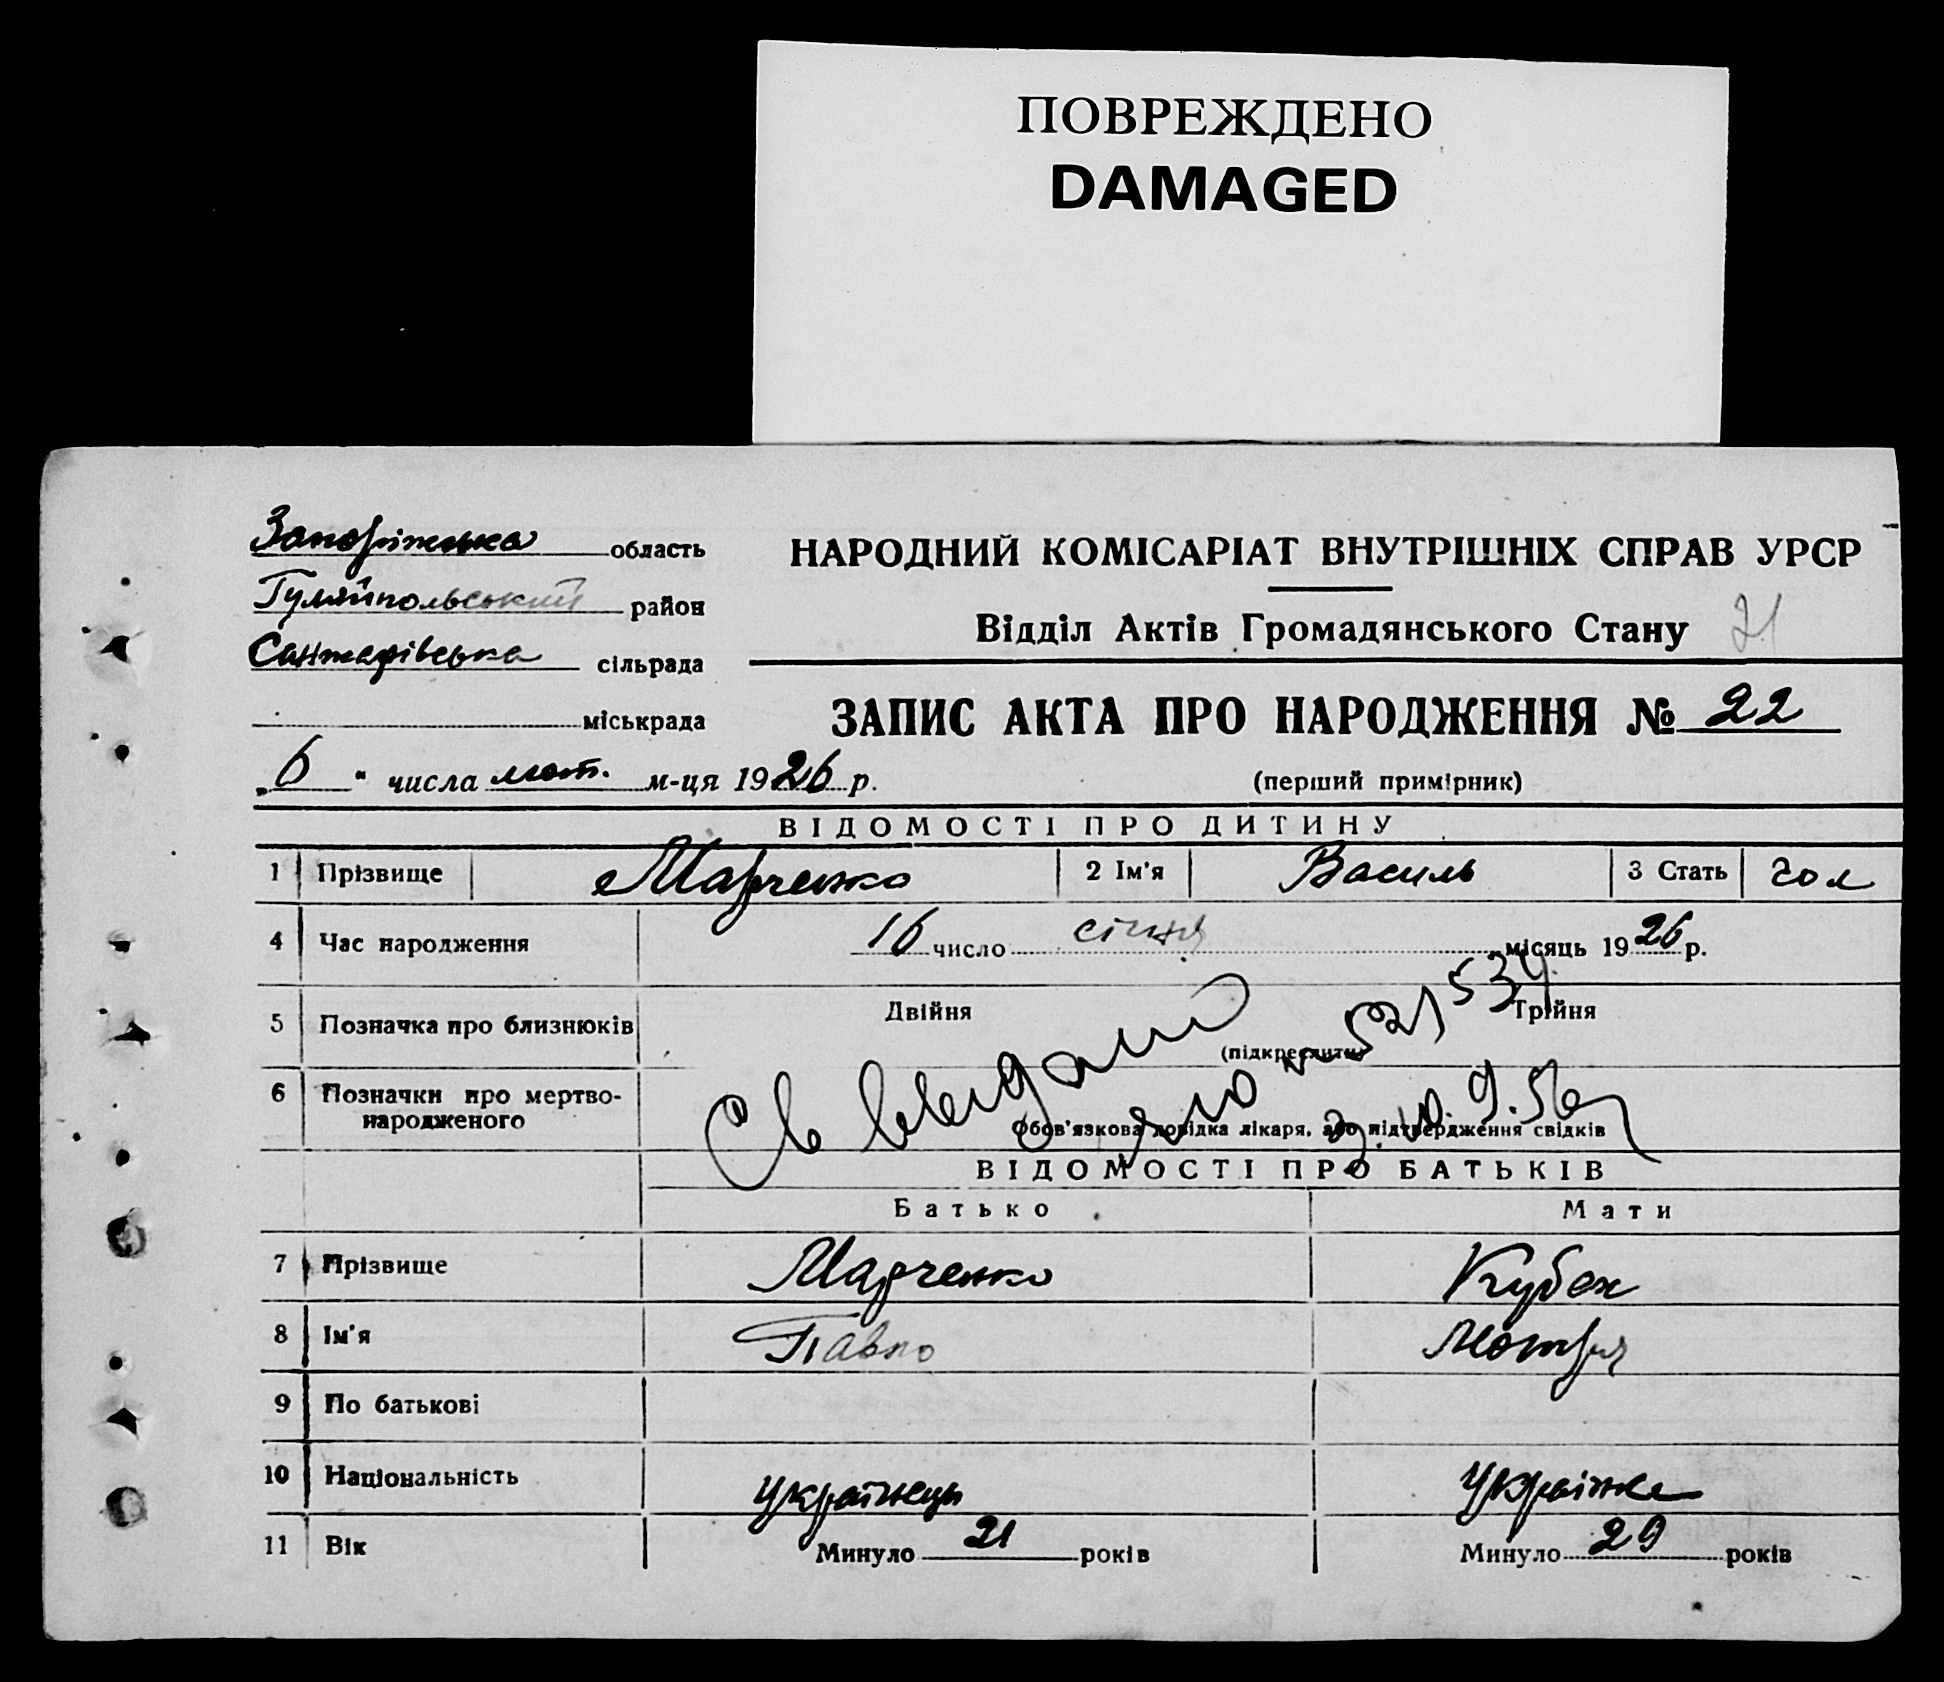 ПОВРЕЖДЕНО
DAMAGED
Запоріжська область
Гуляйпольський район
Сантафівська сільрада
міськрада
„6“ числа лют. м-ця 1926 р.
НАРОДНИЙ КОМІСАРІАТ ВНУТРІШНІХ СПРАВ УРСР
Відділ Актів Громадянського Стану 21
ЗАПИС АКТА ПРО НАРОДЖЕННЯ № 22
(перший примірник)
ВІДОМОСТІ ПРО ДИТИНУ
1 Прізвище Марченко 2 Ім'я Василь 3 Стать чол
4 Час народження 16 число січня місяць 1926 р.
5 Позначка про близнюків Двійня Трійня
(підкреслити)
6 Позначки про мертво-
народженого
Обов'язкова довідка лікаря, або підтвердження свідків
Св видано
521534
10.9.56
ВІДОМОСТІ ПРО БАТЬКІВ
Батько Мати
7 Прізвище Марченко Кубех
8 Ім'я Павло Мотря
9 По батькові
10 Національність українець українка
11 Вік Минуло 21 років Минуло 29 років